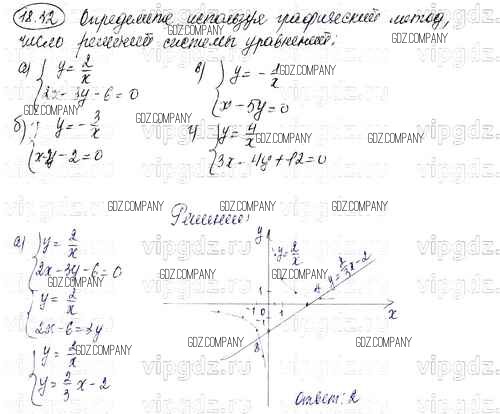 18.42 Определите используя графический метод,
число решений системы уравнений:
а) { y = 2/x
2x - 3y - 6 = 0
б) { y = - 3/x
x - y - 2 = 0
в) { y = - 1/x
x - 5y = 0
г) { y = 4/x
3x - 4y + 12 = 0
Решение:
а) { y = 2/x
2x - 3y - 6 = 0
{ y = 2/x
2x - 6 = 3y
{ y = 2/x
y = 2/3 x - 2
y
y = 2/x
y = 2/3 x - 2
1
-1
0
1
-1
x
Ответ: 2
GDZ.COMPANY
vipgdz.ru